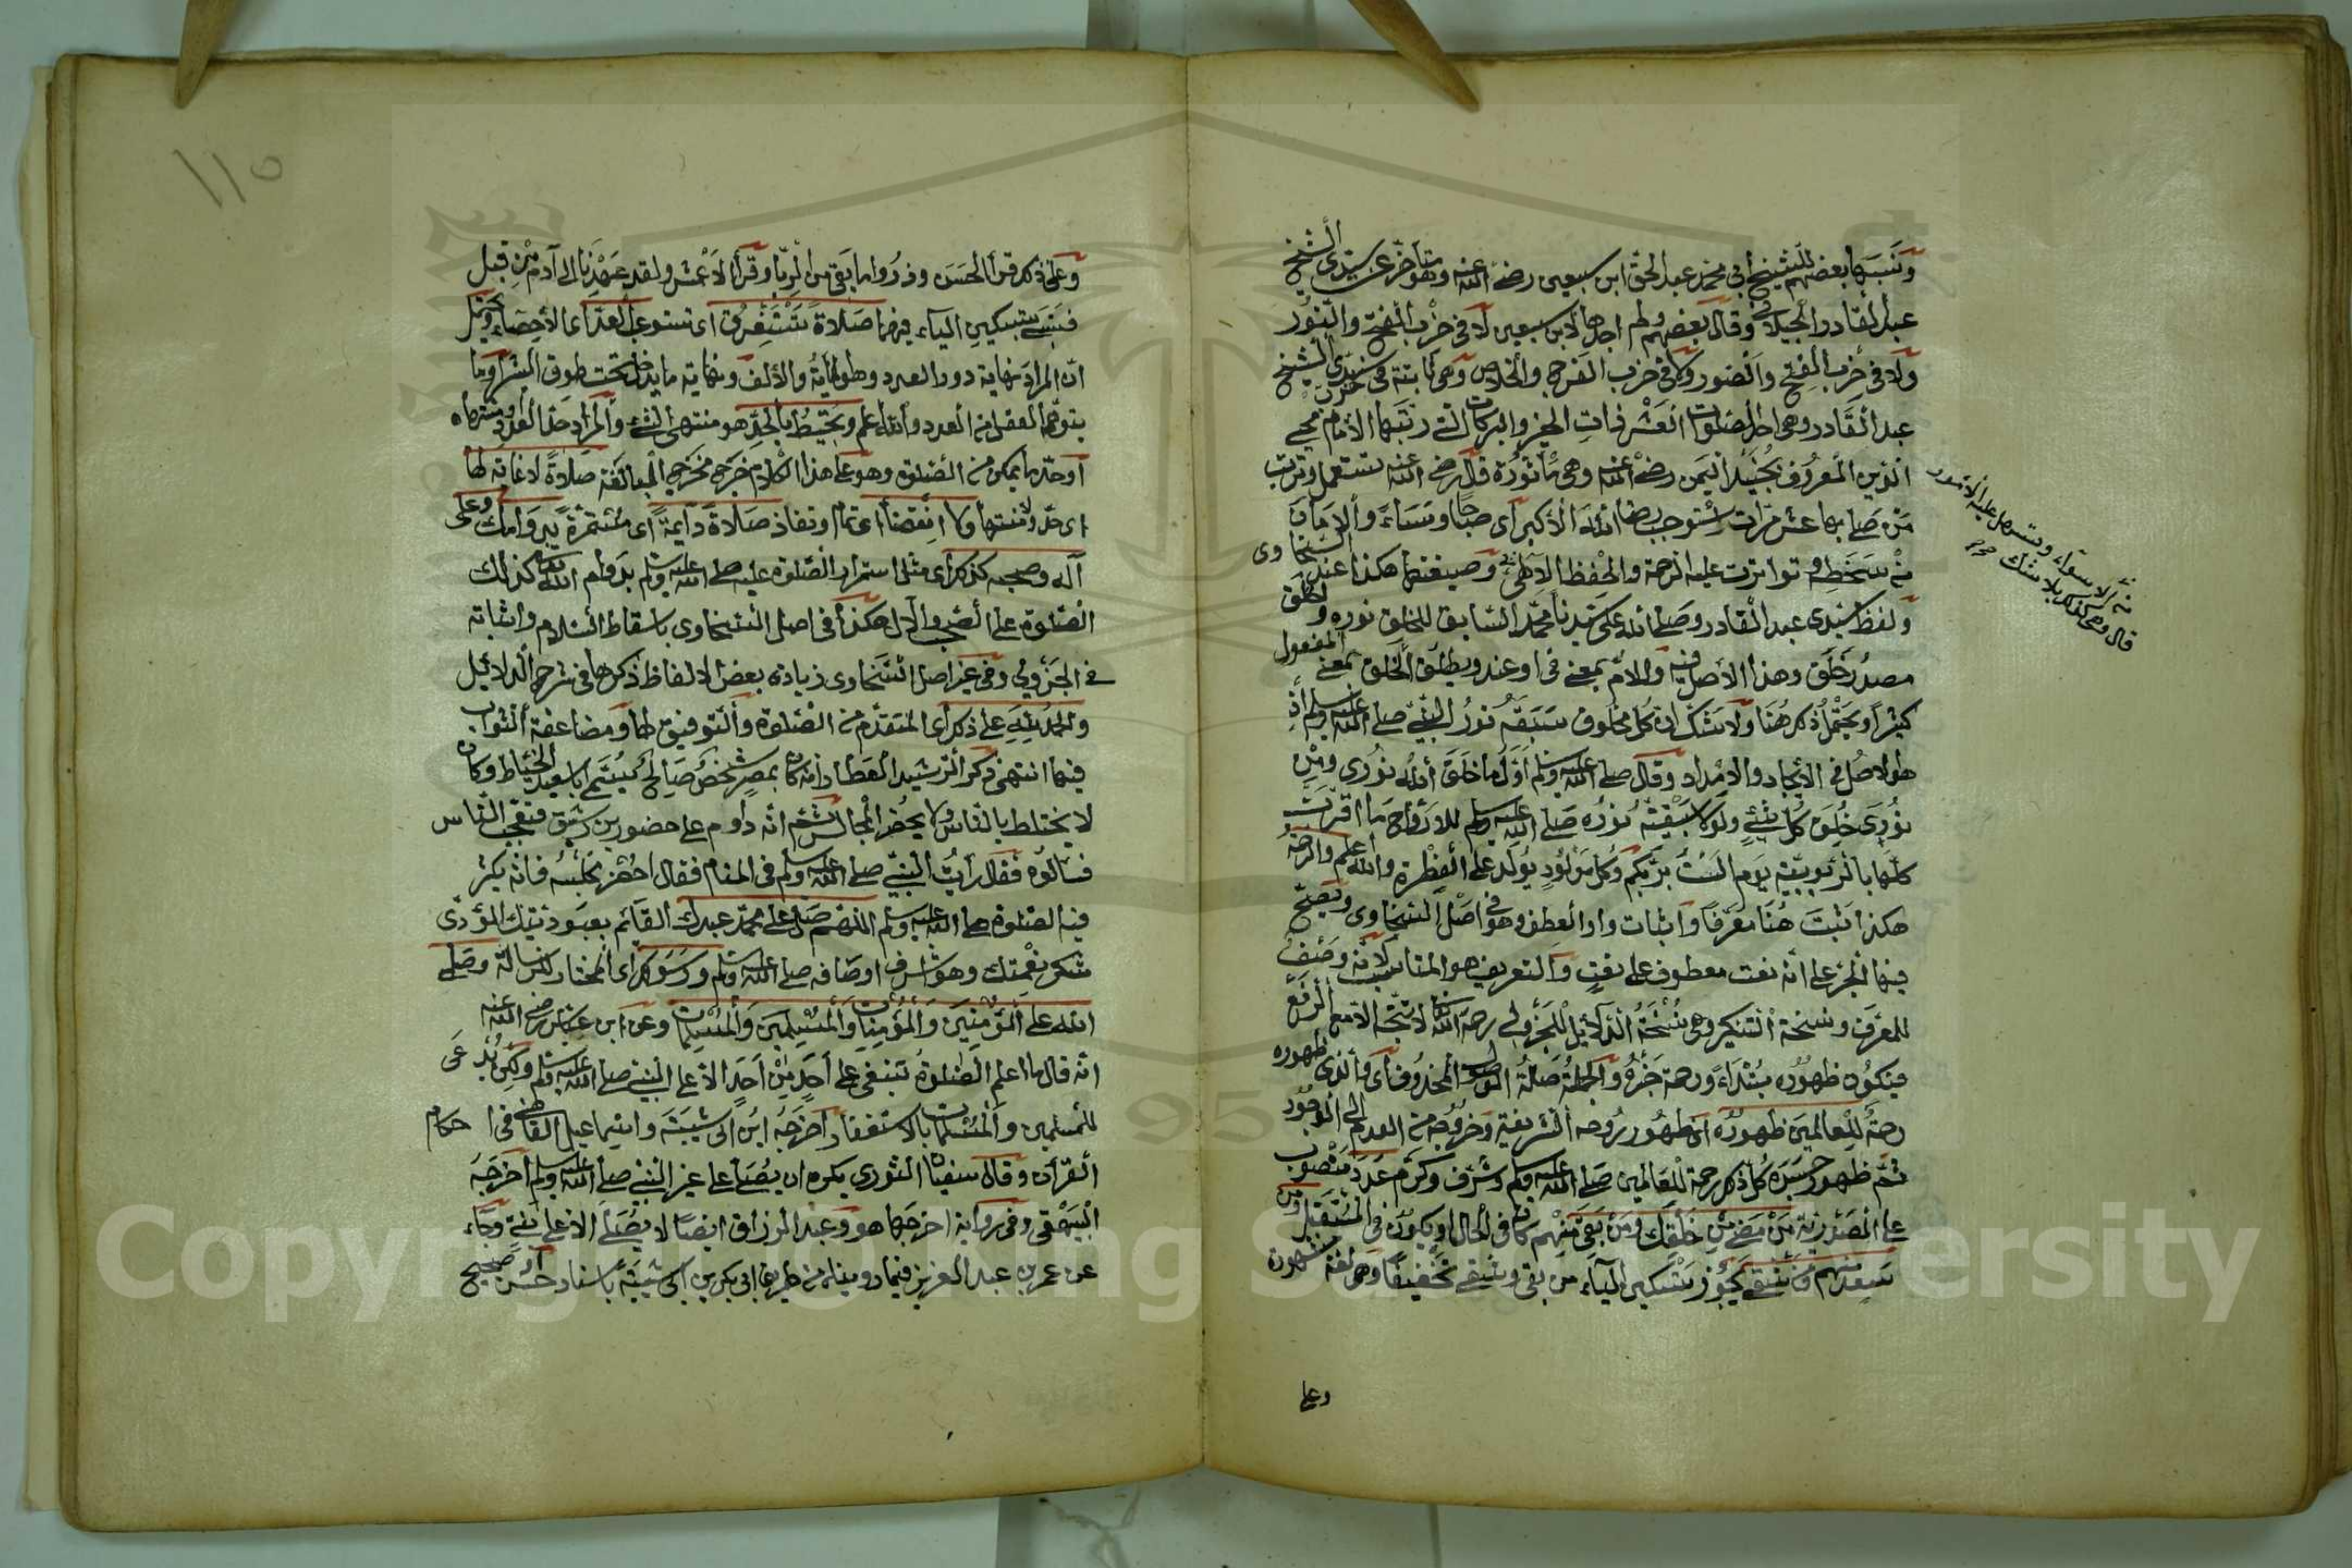 ونسبها بعضهم للشيخ أبي محمد عبد الحق ابن سبعين رضي الله عنه وهو متأخر عن سيدي الشيخ
عبد القادر الجيلاني وقال بعضهم ولم اجدها لابن سبعين لا في حزب الفتح والنور
ولا في حزب الفتح والنور ولا في حزب الفرج والخلاص وهي ثابتة في حزب سيدي الشيخ
عبد القادر وهي احد الصلوات العشر ذات الخير والبركات التي رتبها الأمام محيي
الدين المعروف بجنيد اليمن رضي الله عنه وهي مأثورة قال رضي الله عنه تستعمل وترتب
من صلى بها عشر مرات استوجب رضا الله الأكبر أي صباحا ومساء والأمان
من سخطه وتواترت عليه الرحمة والحفظ الإلهي وصيغتها هكذا عند السخاوي
ولفظ سيدي عبد القادر وصلى الله على سيدنا محمد السابق للخلق نوره والخلق
مصدر خلق وهذا الأصل فيه واللام بمعنى في او عند ويطلق الخلق بمعنى المفعول
كثيرا ويحتمل ذكر هنا ولا شك ان كل مخلوق سبقه نور النبي صلى الله عليه وسلم اذ
هو الاصل في الأيجاد والامداد وقال صلى الله عليه وسلم أول ما خلق الله نوري ومن
نوري خلق كل شيء ولولا سبقية نوره صلى الله عليه وسلم للارواح ما اقرت
كلها بالربوبية يوم الست بربكم وكل مولود يولد على الفطرة والله أعلم والرحمة
هكذا ثبت هنا معرفا وإثبات واو العطف وهو في اصل السخاوي ويصح
فيها الجر على انه نعت معطوف على نعت والتعريف هو المناسب لأنه وصف
للمعرف ونسخة التنكير وهي نسخة الدلائل للجزولي رحمه الله لا يتجه الا مع الرفع
فيكون ظهوره مبتداء ورحمة خبره والجملة صلة المحذوف أي والذي ظهوره
رحمة للعالمين ظهوره أي ظهور روحه الشريفة وخروجه من العدم الى الوجود
ثم ظهور جسده كل ذلك رحمة للعالمين صلى الله عليه وسلم وشرف وكرم عدد منصوب
على المصدرية من مضى من خلقك ومن بقي منهم كان في الحال او يكون في المستقبل ومن
سعد منهم ومن شقي يجوز تسكين الياء من بقي وشقي تخفيفا وهي لغة مشهورة
وعلى
قال وهي كذلك بلا شك
وعلى ذلك قرأ الحسن وذروا ما بقي من الربا وقرأ الأعمش ولقد عهدنا الى آدم من قبل
فنسي بتسكين الياء فيهما صلاة تستغرق اي تستوعب العد أي الأحصاء ويحتمل
ان المراد نهاية دور العدد وهو المائة والألف ونهاية ما يدخل تحت طوق البشر او ما
يتوهم العقل من العدد والله اعلم وتحيط بالحد هو منتهى الشيء والمراد حد العدد ومنتهاه
أو حد ما يمكن من الصلوة وهو على هذا الكلام خرج مخرج المبالغة صلاة لا غاية لها
اي حد ولا منتهى ولا انقضاء اي تمام او نفاذ صلاة دائمة أي مستمرة بدوامك وعلى
آله وصحبه كذلك أي مثل استمرار الصلوة عليه صلى الله عليه وسلم بدوام الله تعالى كذلك
الصلوة على الصحب والآل هكذا في اصل السخاوي باسقاط السلام واثباته
في الجزولي وفي غير اصل السخاوي زيادة بعض الالفاظ ذكرها في شرح الدلائل
والحمد لله على ذلك أي المتقدم من الصلوة والتوفيق لها ومضاعفة الثواب
فيها انتهى ذكر الرشيد العطار انه كان بمصر شخص صالح يسمى ابا سعيد الخياط وكان
لا يختلط بالناس ولا يحضر المجالس ثم انه داوم على حضور بن رشيق فتعجب الناس
فسألوه فقال رأيت النبي صلى الله عليه وسلم في المنام فقال احضر مجلسه فانه يكثر
فيه الصلوة على الله عليه وسلم اللهم صل على محمد عبدك القائم بعبوديتك المؤدى
شكر نعمتك وهو اشرف اوصافه صلى الله عليه وسلم ورسولك أي المختار للرسالة وصلى
الله على المؤمنين والمؤمنات والمسلمين والمسلمات وعن ابن عباس رضي الله عنه
انه قال ما اعلم الصلوة تنبغي على أحد من أحد الا على النبي صلى الله عليه وسلم ولكن يدعى
للمسلمين والمسلمات بالاستغفار أخرجه ابن أبي شيبة واسماعيل القاضي في احكام
القرآن وقال سفيان الثوري يكره ان يصلى على غير النبي صلى الله عليه وسلم أخرجه
البيهقي وفي رواية اخرجها هو وعبد الرزاق ايضا لا يصلى الا على نبي وجاء
عن عمر بن عبد العزيز فيما رويناه من طريق ابي بكر بن ابي شيبة باسناد حسن او صحيح
١١٥
Copyright © King Saud University